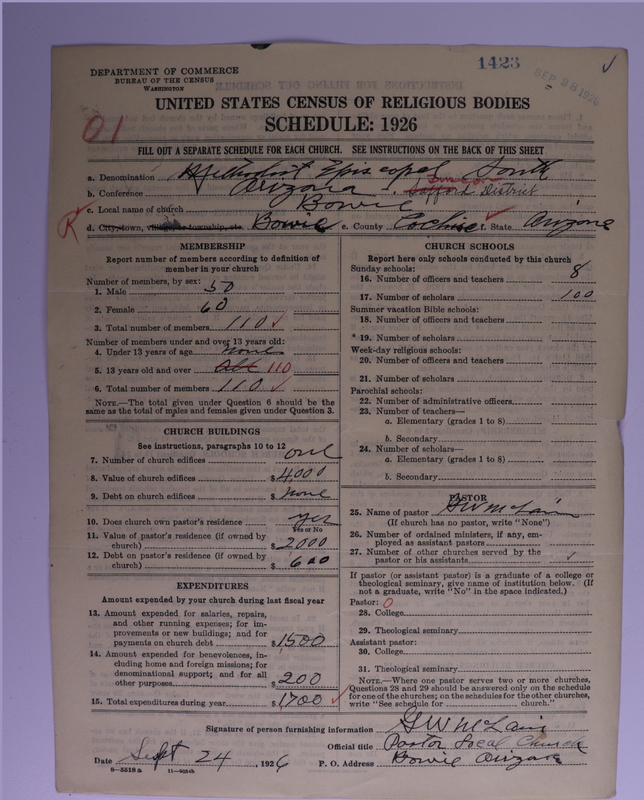 1423
SEP 28 1926
DEPARTMENT OF COMMERCE
BUREAU OF THE CENSUS
WASHINGTON
UNITED STATES CENSUS OF RELIGIOUS BODIES
SCHEDULE: 1926
01
FILL OUT A SEPARATE SCHEDULE FOR EACH CHURCH. SEE INSTRUCTIONS ON THE BACK OF THIS SHEET
a. Denomination Methodist Episcopal South
b. Conference Arizona District
c. Local name of church Bowie
R d. City, town, village, township, etc. Bowie e. County Cochise f. State Arizona
MEMBERSHIP
Report number of members according to definition of member in your church
Number of members, by sex:
1. Male 50
2. Female 60
3. Total number of members 110
Number of members under and over 13 years old:
4. Under 13 years of age none
5. 13 years old and over all 110
6. Total number of members 110
NOTE.—The total given under Question 6 should be the
same as the total of males and females given under Question 3.
CHURCH BUILDINGS
See instructions, paragraphs 10 to 12
7. Number of church edifices one
8. Value of church edifices $ 4000
9. Debt on church edifices $ none
10. Does church own pastor's residence yes
Yes or No
11. Value of pastor's residence (if owned by
church) $ 2000
12. Debt on pastor's residence (if owned by
church) $ 600
EXPENDITURES
Amount expended by your church during last fiscal year
13. Amount expended for salaries, repairs,
and other running expenses; for im-
provements or new buildings; and for
payments on church debt $ 1500
14. Amount expended for benevolences, in-
cluding home and foreign missions; for
denominational support; and for all
other purposes $ 200
15. Total expenditures during year $ 1700
CHURCH SCHOOLS
Report here only schools conducted by this church
Sunday schools:
16. Number of officers and teachers 8
17. Number of scholars 100
Summer vacation Bible schools:
18. Number of officers and teachers
* 19. Number of scholars
Week-day religious schools:
20. Number of officers and teachers
21. Number of scholars
Parochial schools:
22. Number of administrative officers
23. Number of teachers—
a. Elementary (grades 1 to 8)
b. Secondary
24. Number of scholars—
a. Elementary (grades 1 to 8)
b. Secondary
PASTOR
25. Name of pastor G W McLain
(If church has no pastor, write "None")
26. Number of ordained ministers, if any, em-
ployed as assistant pastors
27. Number of other churches served by the
pastor or his assistants
If pastor (or assistant pastor) is a graduate of a college or
theological seminary, give name of institution below. (If
not a graduate, write "No" in the space indicated.)
Pastor: 0
28. College
29. Theological seminary
Assistant pastor:
30. College
31. Theological seminary
NOTE.—Where one pastor serves two or more churches,
Questions 28 and 29 should be answered only on the schedule
for one of the churches; on the schedules for the other churches,
write "See schedule for church."
Signature of person furnishing information G W McLain
Official title Pastor Local Church
Date Sept 24, 1926 P. O. Address Bowie Arizona
8—5518a